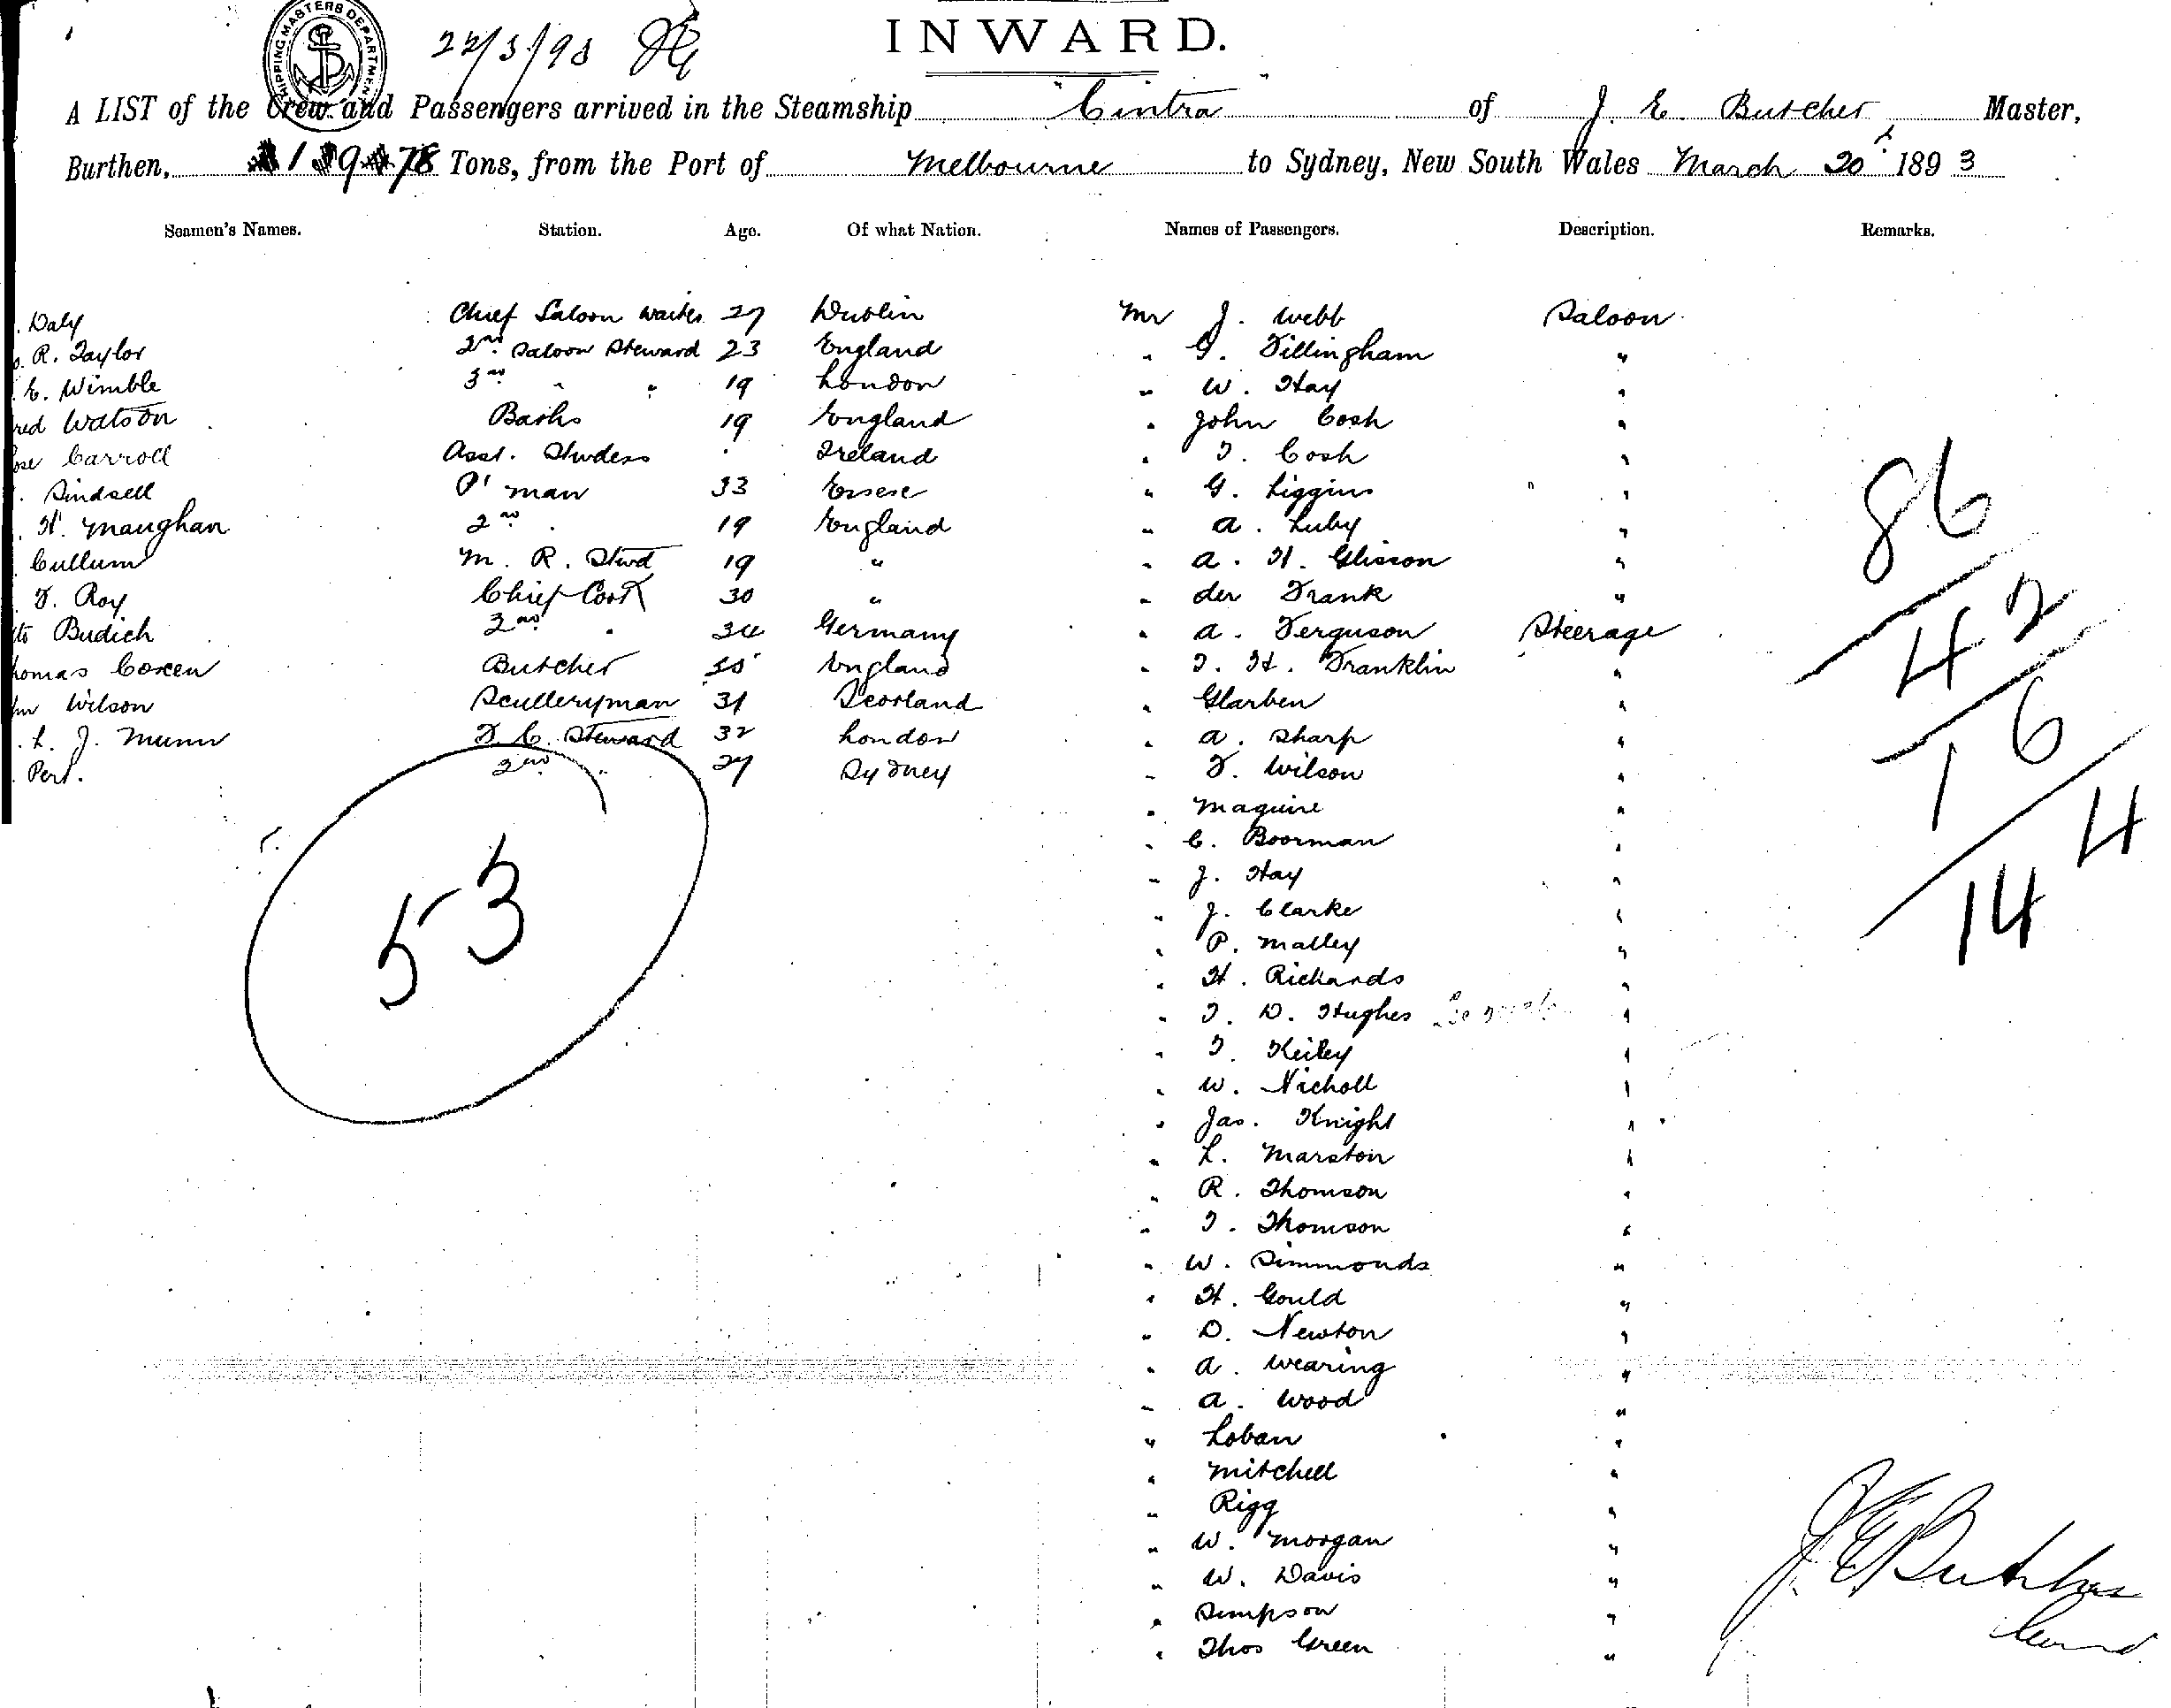 SHIPPING MASTERS DEPARTMENT
22/3/93
INWARD.
A LIST of the Crew and Passengers arrived in the Steamship "Cintra" of J. E. Butcher Master,
Burthen, 1978 Tons, from the Port of Melbourne to Sydney, New South Wales March 20th 1893
Seamen's Names. Station. Age. Of what Nation. Names of Passengers. Description. Remarks.
. Daly Chief Saloon Waiter 27 Dublin Mr J. Webb Saloon
. R. Taylor 2nd Saloon Steward 23 England " G. Dillingham "
. E. Wimble 3rd " " 19 London " W. Hay "
red Watson Baths 19 England " John Cosh "
ose Carroll Asst. Stwdess " Ireland " T. Cosh "
. Sindsell P' man 33 Essex " G. Liggins "
. H. Maughan 2nd " 19 England " A. Luby "
Cullum M. R. Stwd 19 " " A. H. Glisson "
. F. Roy Chief Cook 30 " " der Frank "
tto Budich 2nd " 34 Germany " A. Ferguson Steerage
homas Coxen Butcher England " T. H. Franklin "
hn Wilson Sculleryman 31 Scotland " Glarben "
. L. J. Munn F. C. Steward 32 London " A. Sharp "
. Pert. 2nd " 27 Sydney " F. Wilson "
" Maguire "
" C. Boorman "
" J. Hay "
" J. Clarke "
" P. Malley "
" H. Richards "
" T. D. Hughes "
" T. Keiley "
" W. Nicholl "
" Jas. Knight "
" L. Marston "
" R. Thomson "
" T. Thomson "
" W. Simmonds "
" H. Gould "
" D. Newton "
" A. Wearing "
" A. Wood "
" Loban "
" Mitchell "
" Rigg "
" W. Morgan "
" W. Davis "
" Simpson "
" Thos Green "
53
86
42
16
4
14
J E Butcher